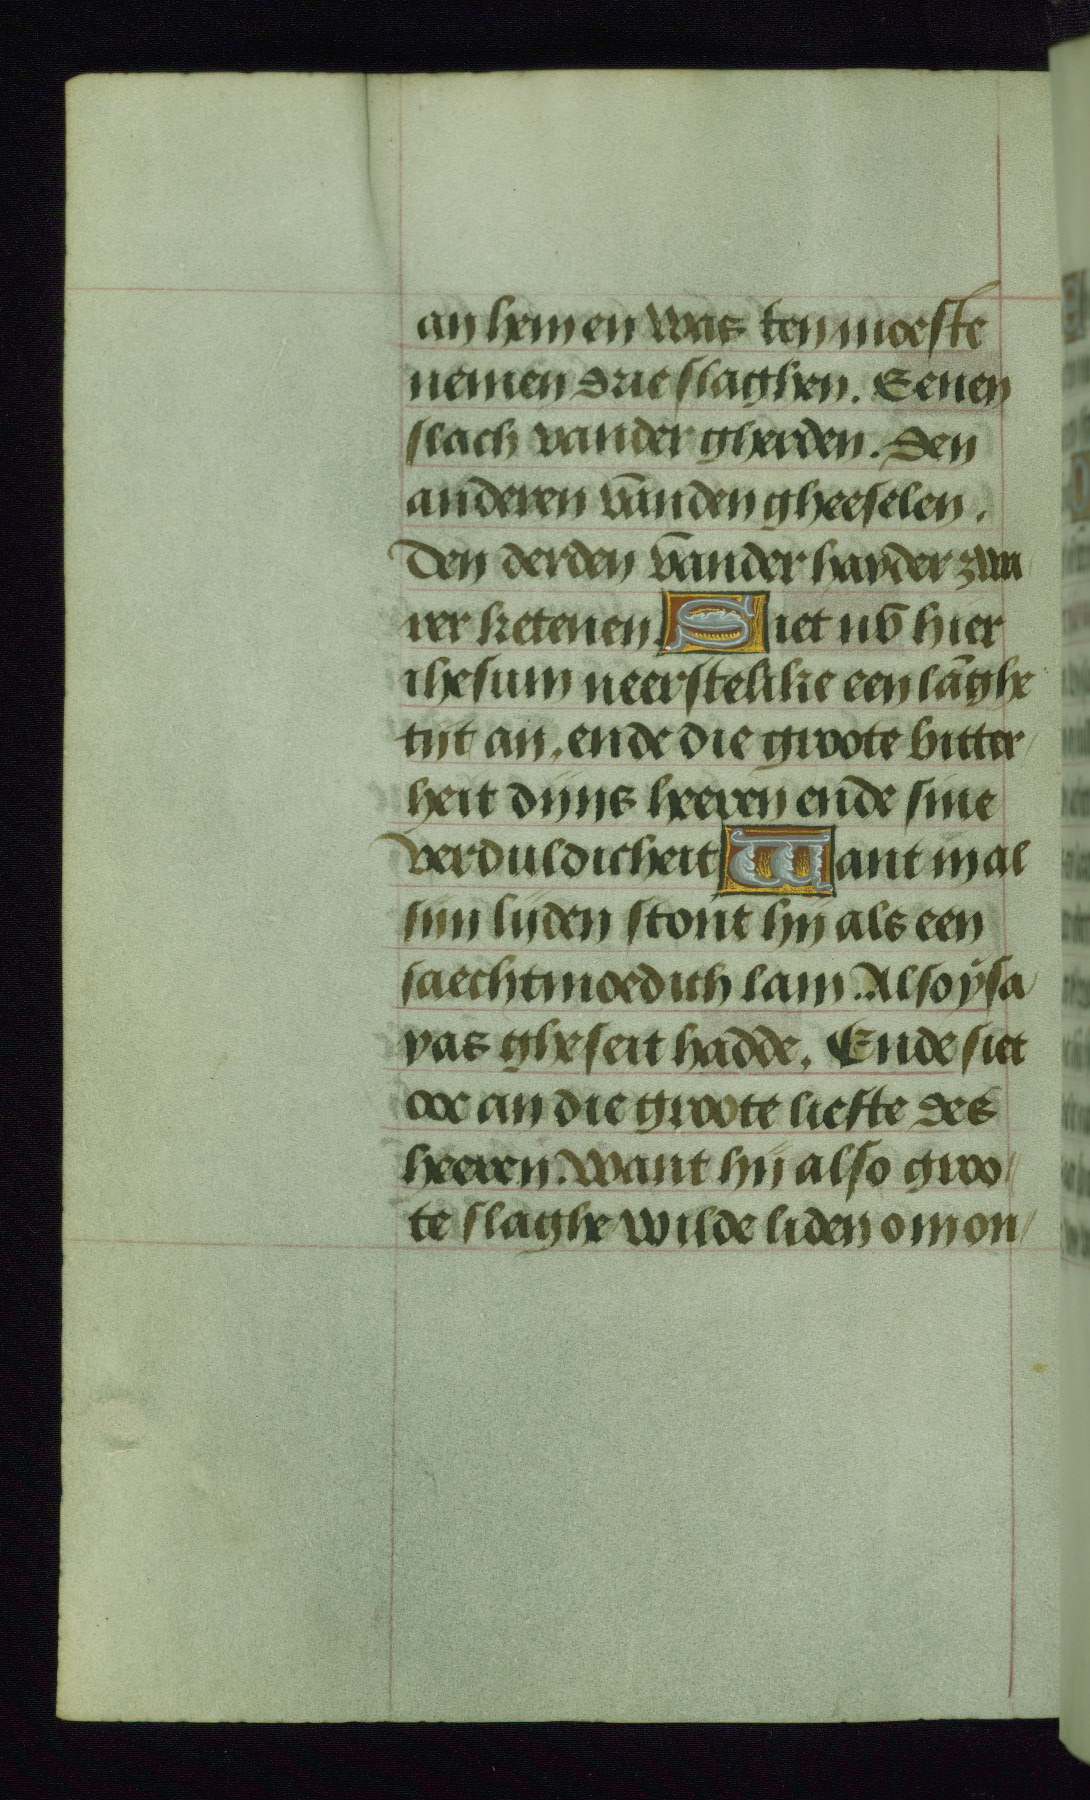 an hem en was ten moeste
nemen drie slaghen. Eenen
slach vander gherden. Den
anderen vanden gheeselen.
Den derden vander harder zwa
rer ketenen. Siet nv hier
ihesum neerstelike een lāghe
tijt an, ende die groote bitter/
heit dijns heeren ende sine
verduldicheit Want in al
sijn lijden stont hij als een
saechtmoedich lam. Also ysa/
yas gheseit hadde. Ende siet
ooc an die groote liefte des
heeren. Want hij also groo/
te slaghe wilde liden om on/